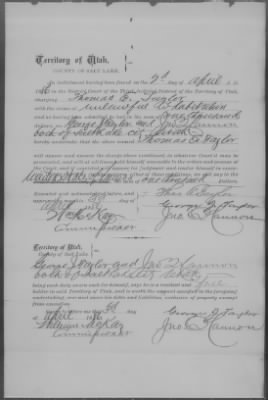 Territory of Utah,
COUNTY OF SALT LAKE.
An indictment having been found on the 2d day of April A. D.
in the District Court of the Third Judicial District of the Territory of Utah,
charging Thomas E. Taylor
with the crime of unlawful cohabitation
and he having been admitted to bail in the sum of One Thousand
dollars, George J Taylor and Jno M Cannon
both of Salt Lake City Utah
hereby undertake that the above named Thomas E Taylor
will appear and answer the charge above mentioned, in whatever Court it may be
prosecuted, and will at all times hold himself amenable to the orders and process of
the Court, and if convicted, will appear for judgment and render himself in
execution thereof, or if he fail to perform either of these conditions, we will pay to the
One Thousand Dollars.
before me this 3d day
April
Commissioner
Thos E Taylor
George J Taylor
Jno M Cannon
Territory of Utah,
County of Salt Lake.
George J Taylor and Jno M Cannon
both of Salt Lake City
being each duly sworn each for himself, says he is a resident and free
holder in said Territory, and is worth the amount specified in the foregoing
undertaking, over and above his debts and liabilities, exclusive of property exempt
from execution.
this 3d day
of April 1886
William McKay
Commissioner
George J Taylor
Jno M Cannon